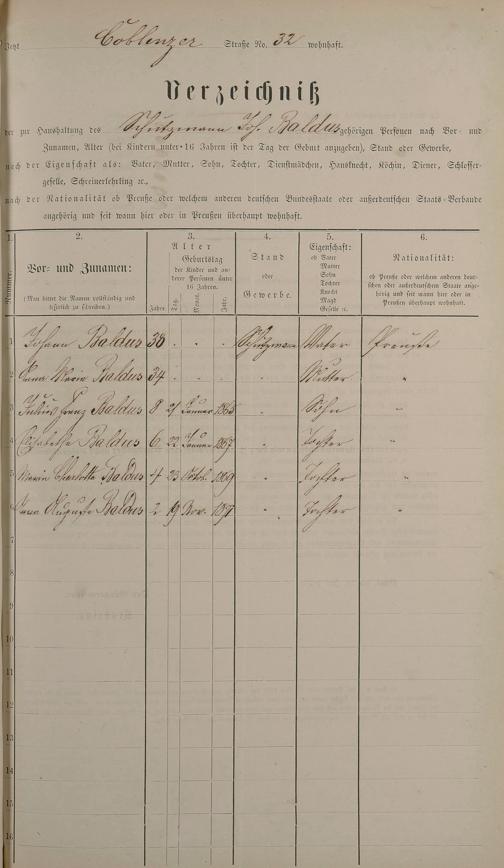 Jetzt Coblenzer Straße No. 32 wohnhaft.
Verzeichniß
der zur Haushaltung des Schutzmann Joh. Baldus gehörigen Personen nach Vor- und
Zunamen, Alter (bei Kindern unter 16 Jahren ist der Tag der Geburt anzugeben), Stand oder Gewerbe,
nach der Eigenschaft als: Vater, Mutter, Sohn, Tochter, Dienstmädchen, Hausknecht, Köchin, Diener, Schlosser-
geselle, Schreinerlehrling ec.,
nach der Nationalität ob Preuße oder welchem anderen deutschen Bundesstaate oder außerdeutschen Staats-Verbande
angehörig und seit wann hier oder in Preußen überhaupt wohnhaft.
1. 2. 3. 4. 5. 6.
Nummer. Vor- und Zunamen:
(Man bittet die Namen vollständig und
leserlich zu schreiben.)
Alter
Geburtstag
der Kinder und an-
derer Personen unter
16 Jahren.
Jahre Tag. Monat. Jahr.
Stand
oder
Gewerbe.
Eigenschaft:
ob Vater
Mutter
Sohn
Tochter
Knecht
Magd
Geselle ec.
Nationalität:
ob Preuße oder welchem anderen deut-
schen oder außerdeutschen Staate ange-
hörig und seit wann hier oder in
Preußen überhaupt wohnhaft.
1 Johann Baldus 38 . . . Schutzmann Vater Preuße
2 Anna Maria Baldus 34 . . . . Mutter "
3 Julius Franz Baldus 8 21 Januar 1865 . Sohn "
4 Elisabetha Baldus 6 22 Januar 1867 . Tochter "
5 Maria Charlotte Baldus 4 23 Octob. 1869 . Tochter "
6 Anna Auguste Baldus 2 19 Nov. 1871 . Tochter "
7
8
9
10
11
12
13
14
15
16